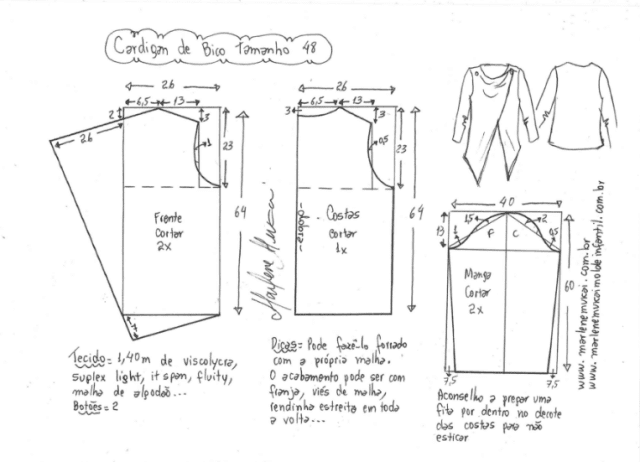 Cardigan de Bico Tamanho 48
26
6,5 13
2
3
26
1
23
64
Frente
Cortar
2x
7
26
6,5 13
3
3
0,5
23
64
-dobra-
Costas
cortar
1x
Marlene Mukai
40
13
1,5
2
1
F C
0,5
60
Manga
Cortar
2x
7,5 7,5
www.marlenemukai.com.br
www.marlenemukaimoldeinfantil.com.br
Tecido= 1,40m de viscolycra,
suplex light, it span, fluity,
malha de algodão...
Botões= 2
Dicas= Pode fazê-lo forrado
com a própria malha.
O acabamento pode ser com
franja, viés de malha,
rendinha estreita em toda
a volta...
Aconselho a prepar uma
fita por dentro no decote
das costas para não
esticar